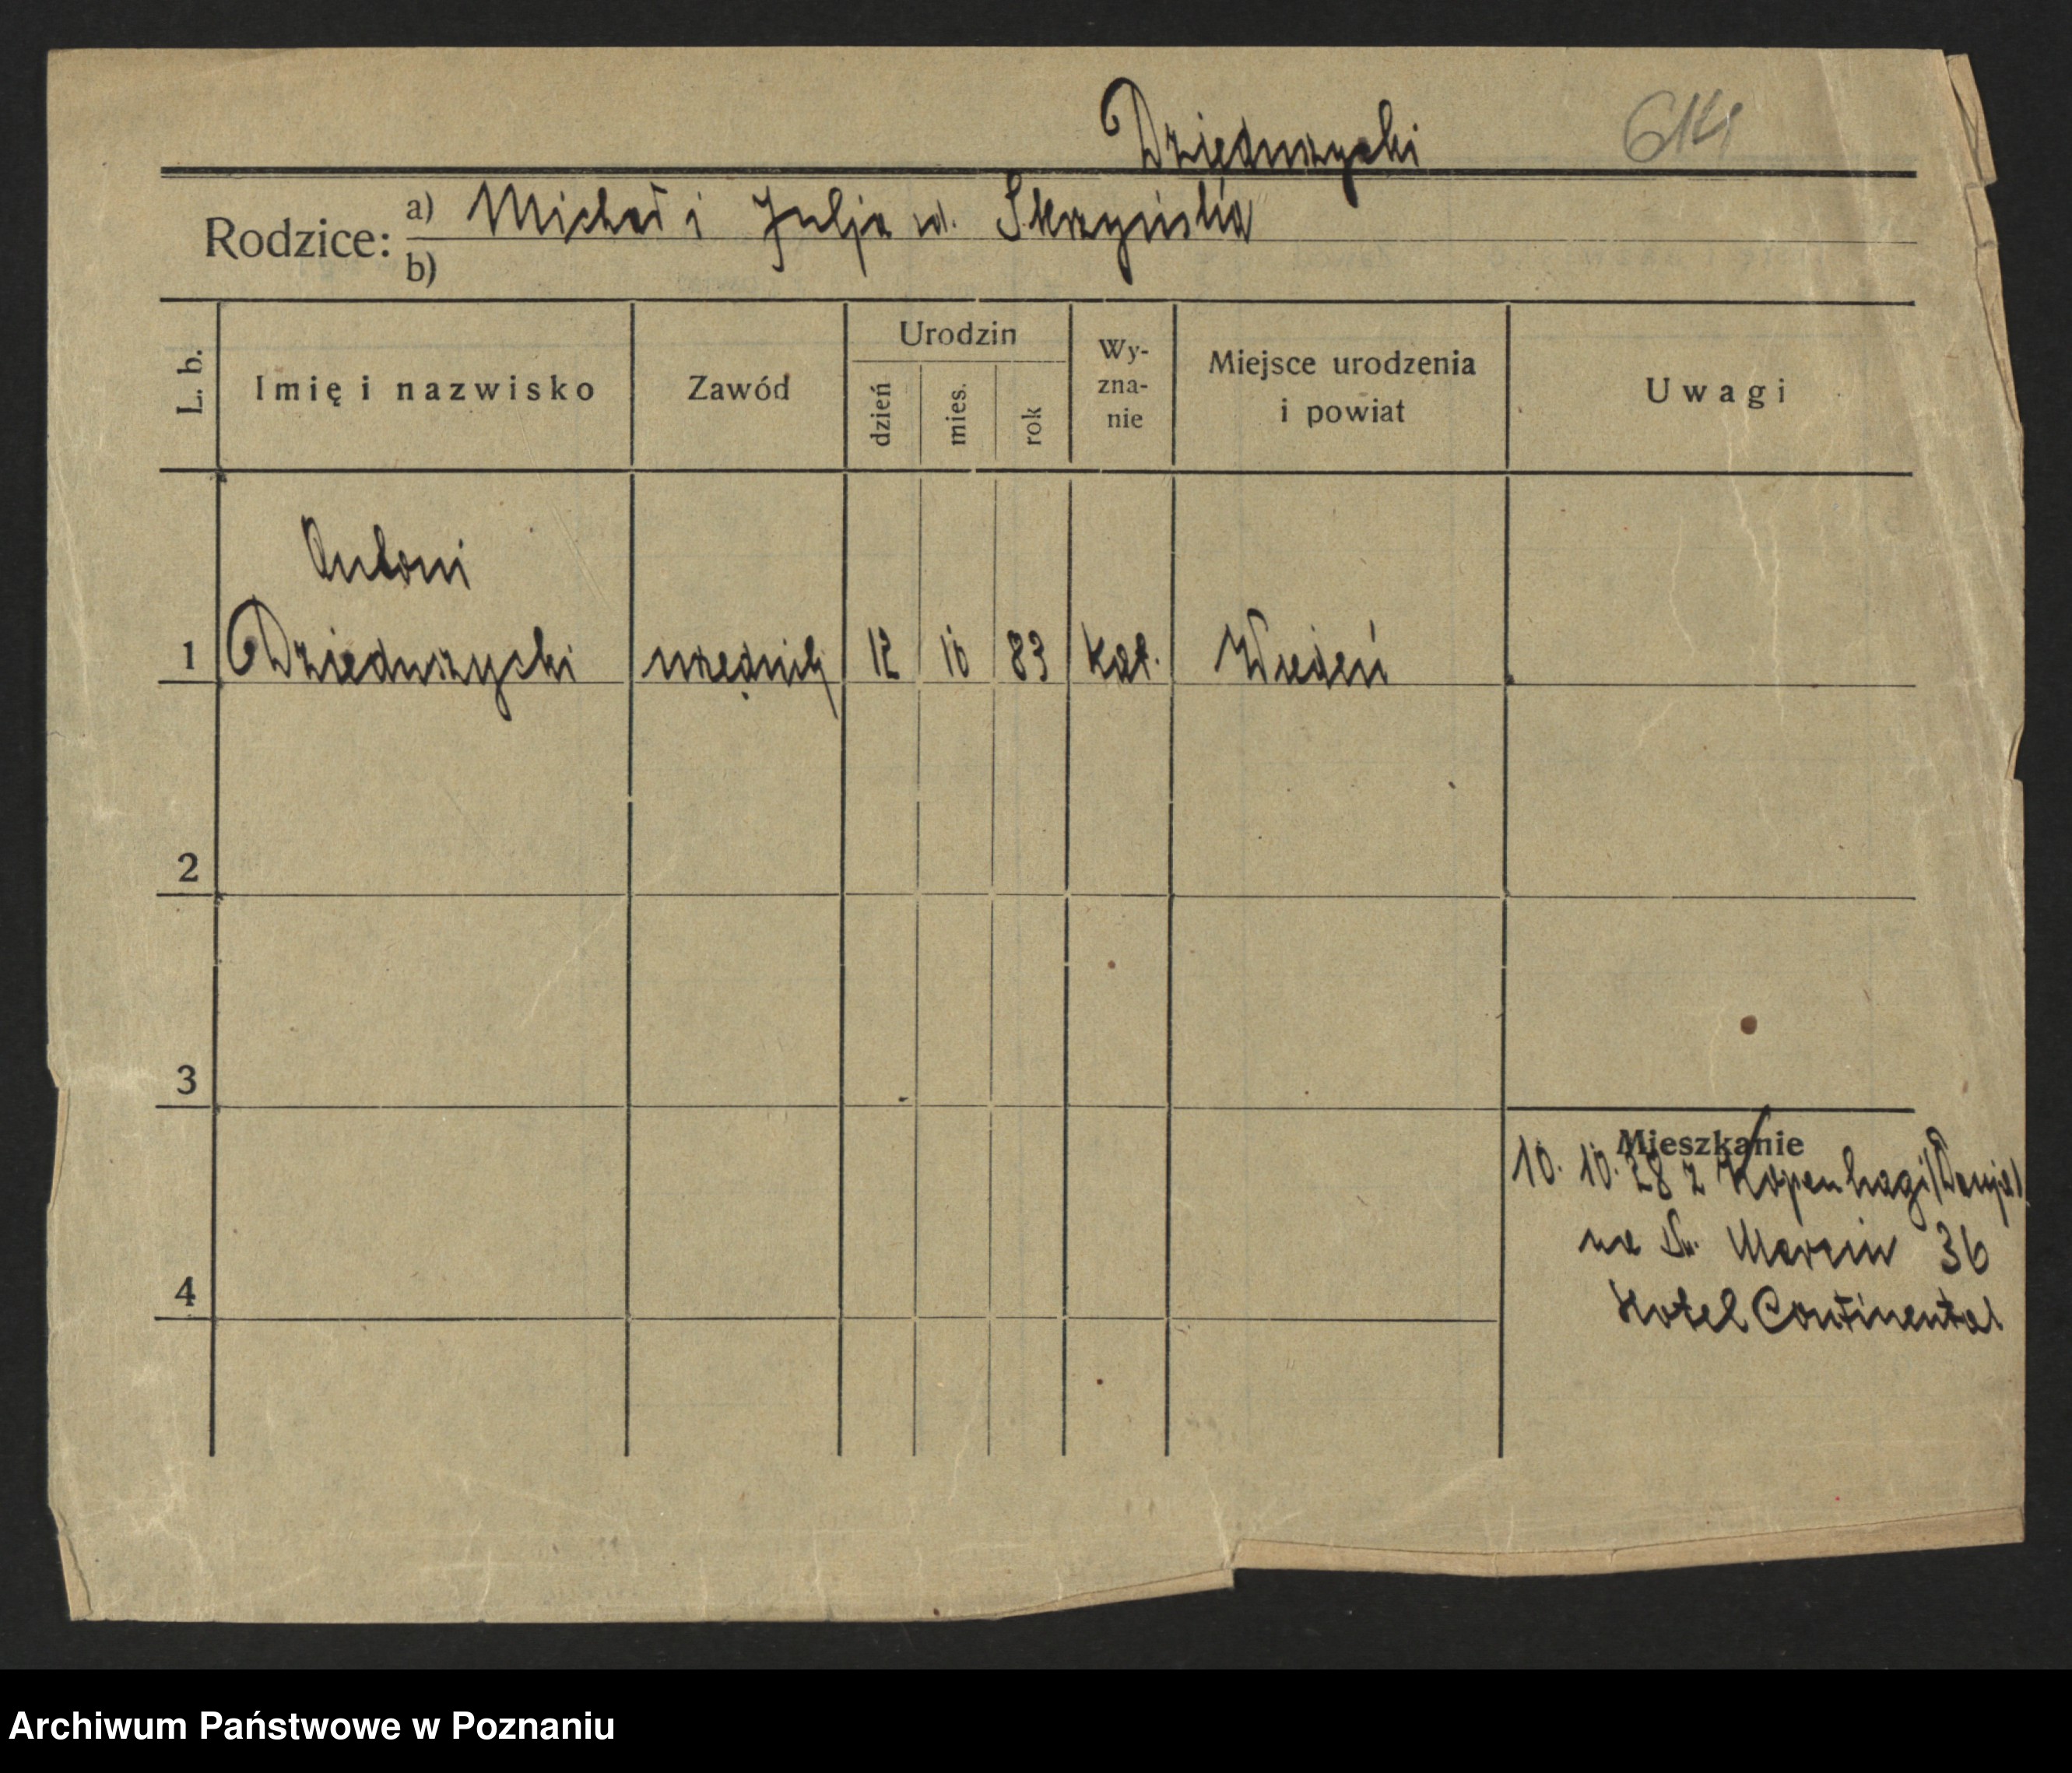 Dzieduszycki 614
Rodzice: a) Michał i Julja ur. Skrzyńska
b)
L. b. Imię i nazwisko Zawód Urodzin dzień mies. rok Wy-zna-nie Miejsce urodzenia i powiat Uwagi
Antoni
1 Dzieduszycki urzędnik 12 10 83 kat. Wiedeń
2
3
Mieszkanie
10. 10. 28 z Kopenhagi (Danja)
na Św. Marcin 36
4 Hotel Continental
Archiwum Państwowe w Poznaniu